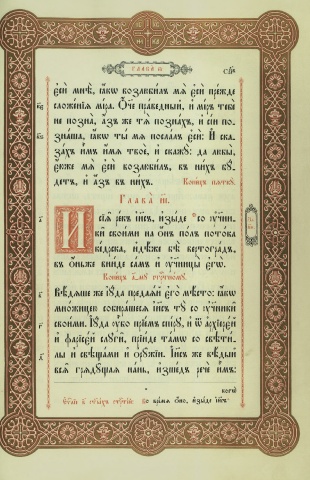 ГЛАВА
є҆сѝ мнѣ̀, ꙗ҆́кѡ возлюби́лъ мѧ̀ є҆сѝ пре́жде
сложе́нїѧ мі́ра. Ѻ҆́ч҃е пра́ведный, и҆ мі́ръ тебє̀
не позна̀, а҆́зъ же тѧ̀ позна́хъ, и҆ сі́и по-
зна́ша, ꙗ҆́кѡ ты̀ мѧ̀ посла́лъ є҆сѝ: И҆ ска-
за́хъ и҆̀мъ и҆́мѧ твоѐ, и҆ скажꙋ̀: да любы̀,
є҆́юже мѧ̀ є҆сѝ возлюби́лъ, въ ни́хъ бꙋ́-
детъ, и҆ а҆́зъ въ ни́хъ.
Коне́цъ пѧткꙋ̀.
ГЛАВА̀ И҃І.
И҆ сїѧ̑ ре́къ і҆и҃съ, и҆зы́де со ᲂу҆ч҃ни-
кѝ свои́ми на ѻ҆́нъ по́лъ пото́ка
ке́дрска, и҆дѣ́же бѣ̀ вертогра́дъ,
въ ѻ҆́ньже вни́де са́мъ и҆ ᲂу҆ч҃ницы̀ є҆гѡ̀.
Коне́цъ
Вѣ́дѧше же і҆ꙋ́да предаѧ́й є҆го̀ мѣ́сто: ꙗ҆́кѡ
мно́жицею собира́шесѧ і҆и҃съ тꙋ̀ со ᲂу҆ч҃ники̑
свои́ми. І҆ꙋ́да ᲂу҆̀бо прїе́мъ спі́рꙋ, и҆ ѿ а҆рхїерє́й
и҆ фарїсє́й слꙋги̑, прїи́де та́мѡ со свѣти̑-
лы и҆ свѣща́ми и҆ ѻ҆рꙋ̑жїи. І҆и҃съ же вѣ́дый
всѧ̑ грѧдꙋ̑щаѧ на́нь, и҆зше́дъ речѐ и҆̀мъ:
когѡ̀
во вре́мѧ ѻ҆́но, и҆зы́де і҆и҃съ